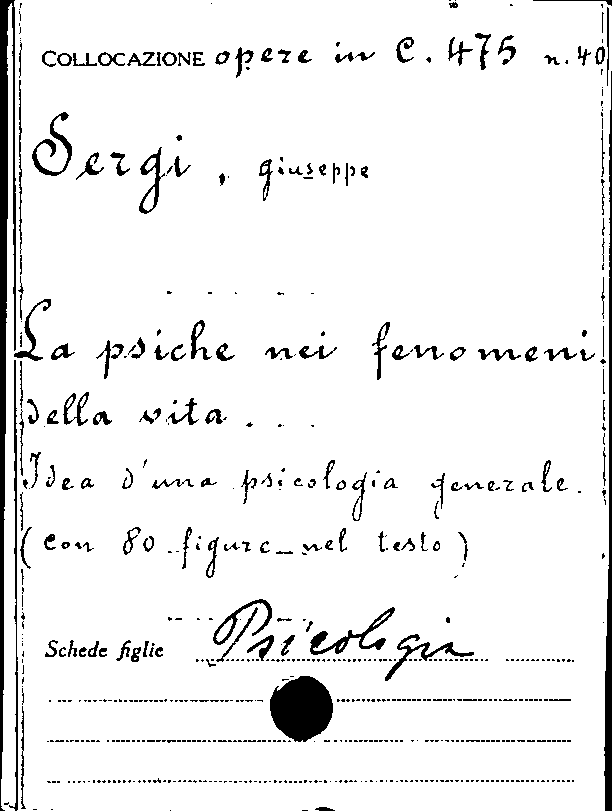 COLLOCAZIONE opere in C. 475 n. 40
Sergi, giuseppe
La psiche nei fenomeni
della vita . . .
Idea d'una psicologia generale.
(con 80 figure nel testo)
Schede figlie Psicologia